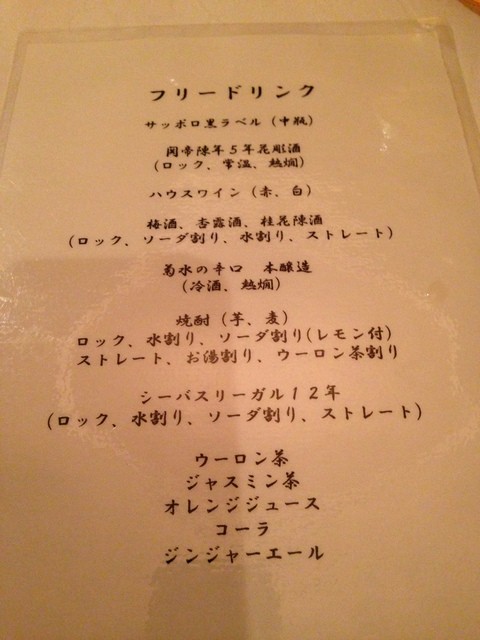 フリードリンク
サッポロ黒ラベル（中瓶）
関帝陳年５年花彫酒
（ロック、常温、熱燗）
ハウスワイン（赤、白）
梅酒、杏露酒、桂花陳酒
（ロック、ソーダ割り、水割り、ストレート）
菊水の辛口　本醸造
（冷酒、熱燗）
焼酎（芋、麦）
ロック、水割り、ソーダ割り(レモン付)
ストレート、お湯割り、ウーロン茶割り
シーバスリーガル１２年
（ロック、水割り、ソーダ割り、ストレート）
ウーロン茶
ジャスミン茶
オレンジジュース
コーラ
ジンジャーエール